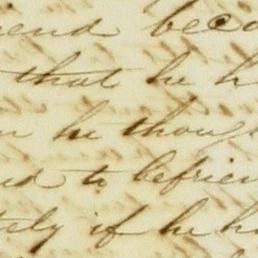 iend beca
that he h
n he thoug
nd to befrien
tely if he ha